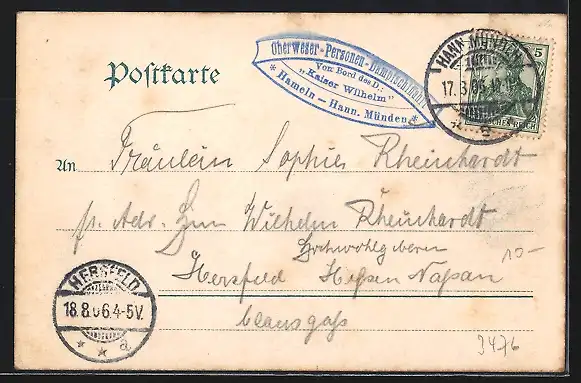 Postkarte
Oberweser-Personen-Dampfschiffahrt
Von Bord des D.:
„Kaiser Wilhelm"
* Hameln – Hann. Münden *
HANN. MÜNDEN
17. 8. 06.
* a *
5
An Fräulein Sophie Rheinhardt
p. Adr. Wilhelm Rheinhardt
Hochwohlgeboren
10-
Hersfeld Hessen Nassau
HERSFELD
18.8.06.4-5V.
* * a
3476